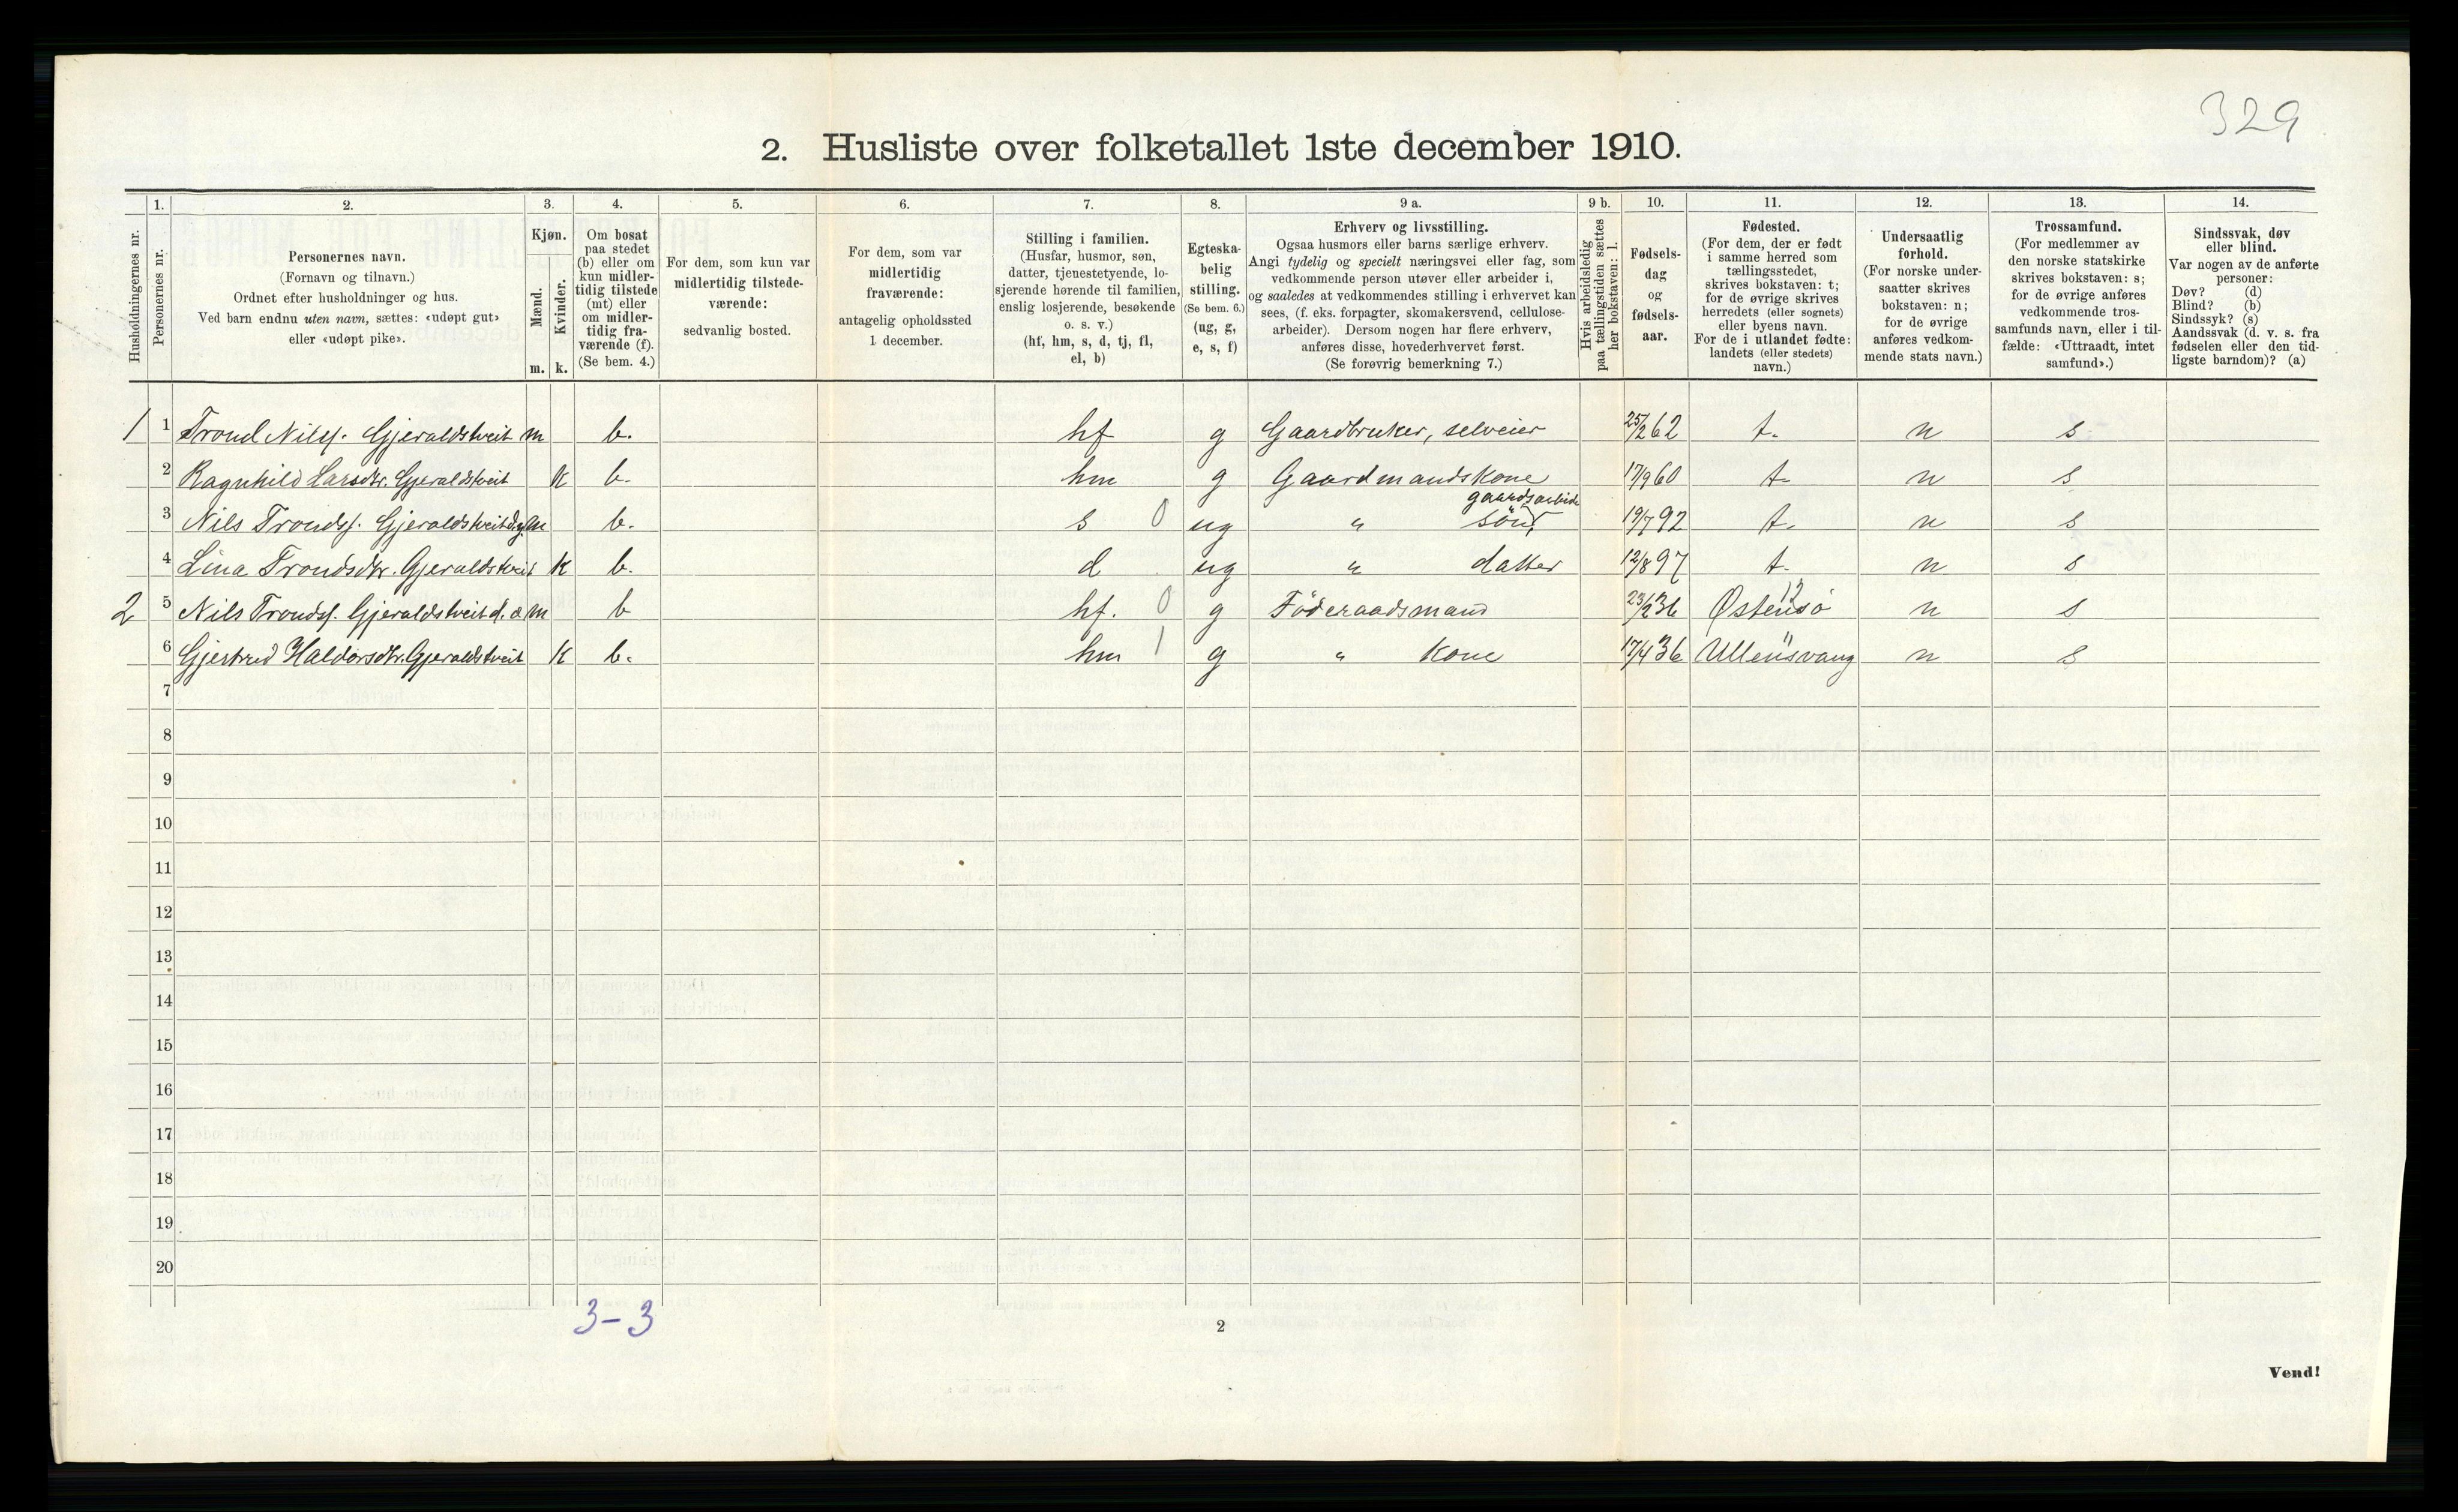 329
2. Husliste over folketallet 1ste december 1910.
Husholdningernes nr.
1. Personernes nr.
2. Personernes navn.
(Fornavn og tilnavn.)
Ordnet efter husholdninger og hus.
Ved barn endnu uten navn, sættes: «udøpt gut»
eller «udøpt pike».
3. Kjøn.
Mænd. Kvinder.
m. k.
4. Om bosat
paa stedet
(b) eller om
kun midler-
tidig tilstede
(mt) eller
om midler-
tidig fra-
værende (f).
(Se bem. 4.)
5. For dem, som kun var
midlertidig tilstede-
værende:
sedvanlig bosted.
6. For dem, som var
midlertidig
fraværende:
antagelig opholdssted
1 december.
7. Stilling i familien.
(Husfar, husmor, søn,
datter, tjenestetyende, lo-
sjerende hørende til familien,
enslig losjerende, besøkende
o. s. v.)
(hf, hm, s, d, tj, fl,
el, b)
8. Egteska-
belig
stilling.
(Se bem. 6.)
(ug, g,
e, s, f)
9 a. Erhverv og livsstilling.
Ogsaa husmors eller barns særlige erhverv.
Angi tydelig og specielt næringsvei eller fag, som
vedkommende person utøver eller arbeider i,
og saaledes at vedkommendes stilling i erhvervet kan
sees, (f. eks. forpagter, skomakersvend, cellulose-
arbeider). Dersom nogen har flere erhverv,
anføres disse, hovederhvervet først.
(Se forøvrig bemerkning 7.)
9 b. Hvis arbeidsledig
paa tællingstiden sættes
her bokstaven: l.
10. Fødsels-
dag
og
fødsels-
aar.
11. Fødested.
(For dem, der er født
i samme herred som
tællingsstedet,
skrives bokstaven: t;
for de øvrige skrives
herredets (eller sognets)
eller byens navn.
For de i utlandet fødte:
landets (eller stedets)
navn.)
12. Undersaatlig
forhold.
(For norske under-
saatter skrives
bokstaven: n;
for de øvrige
anføres vedkom-
mende stats navn.)
13. Trossamfund.
(For medlemmer av
den norske statskirke
skrives bokstaven: s;
for de øvrige anføres
vedkommende tros-
samfunds navn, eller i til-
fælde: «Uttraadt, intet
samfund».)
14. Sindssvak, døv
eller blind.
Var nogen av de anførte
personer:
Døv? (d)
Blind? (b)
Sindssyk? (s)
Aandssvak (d. v. s. fra
fødselen eller den tid-
ligste barndom)? (a)
1 1 Trond Nilsf. Gjeraldstveit m b. hf g Gaardbruker, selveier 25/2 62 t. n s
2 Ragnhild Larsdtr. Gjeraldstveit k b. hm g Gaardmandskone 17/9 60 t. n s
gaardsarbeide
3 Nils Trondsf. Gjeraldstveit d.y. m b. s 0 ug " søn, 19/7 92 t. n s
4 Lina Trondsdtr. Gjeraldstveit k b. d ug " datter 12/8 97 t. n s
12
2 5 Nils Trondsf. Gjeraldstveit d. æ m b hf. 0 g Föderaadsmand 23/2 36 Østensø n s
6 Gjertrud Haldorsdtr. Gjeraldstveit k b. hm 1 g " kone 17/4 36 Ullensvang n s
7
8
9
10
11
12
13
14
15
16
17
18
19
20
3-3
2
Vend!